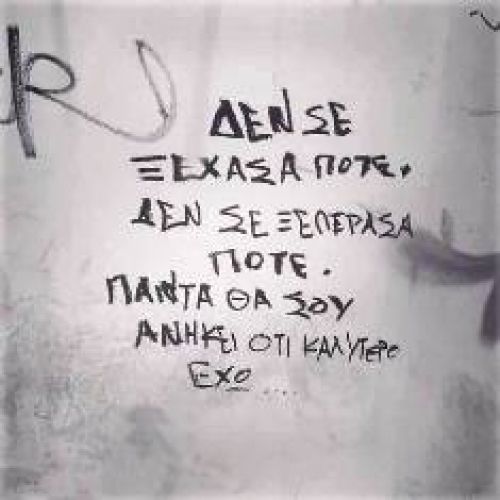 ΔΕΝ ΣΕ
ΞΕΧΑΣΑ ΠΟΤΕ.
ΔΕΝ ΣΕ ΞΕΠΕΡΑΣΑ
ΠΟΤΕ.
ΠΑΝΤΑ ΘΑ ΣΟΥ
ΑΝΗΚΕΙ ΟΤΙ ΚΑΛΥΤΕΡΟ
ΕΧΟ ....